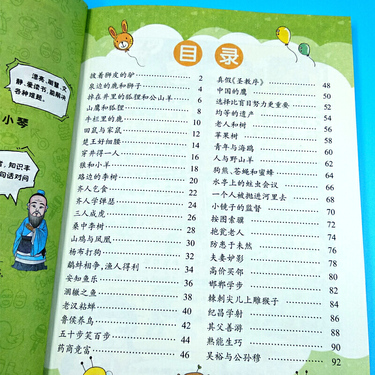 漂亮、聪慧、文
静、爱读书、能解决
各种难题。
小琴
知识丰
句话对问
目录
披着狮皮的驴 2
泉边的鹿和狮子 4
掉在井里的狐狸和公山羊 6
山鹰和狐狸 8
牛栏里的鹿 10
田鼠与家鼠 12
楚王好细腰 14
穿井得一人 16
猴和小羊 18
路边的李树 20
齐人乞食 22
齐人学弹瑟 24
三人成虎 26
桑中李树 28
山鸡与凤凰 30
杨布打狗 32
鹬蚌相争,渔人得利 34
安知鱼乐 36
涸辙之鱼 38
老汉粘蝉 40
鲁侯养鸟 42
五十步笑百步 44
药商竞富 46
真假《圣教序》 48
中国的鹰 50
选择比盲目努力更重要 52
均等的遗产 54
老人和树 56
苹果树 58
青年与海鸥 60
人与野山羊 62
狗熊、苍蝇和蜜蜂 64
水手上的蚊虫会议 66
一个人被抛进河里去 68
小镜子的监督 70
按图索骥 72
抱瓮老人 74
防患于未然 76
夫妻妒影 78
高价买邻 80
邯郸学步 82
棘刺尖儿上雕猴子 84
纪昌学射 86
其父善游 88
熟能生巧 90
吴裕与公孙穆 92